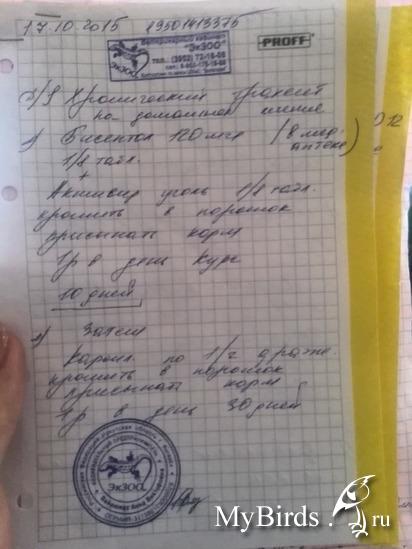 17.10.2015 89501413375
Ветеринарный кабинет
"ЭкЗОО"
тел.: (3952) 72-16-06
PROFF
D/S Хронический трахеит
на домашнем
1) Бисептол 120 мгр (в мед.
аптеке)
1/8 табл.
+
Активир уголь 1/8 табл.
крошить в порошок
присыпать корм
1р в день курс
10 дней
2) Затем
Карсил по 1/2 драже.
крошить в порошок
присыпать корм
1р в день 30 дней
ЭкЗОО
MyBirds.ru